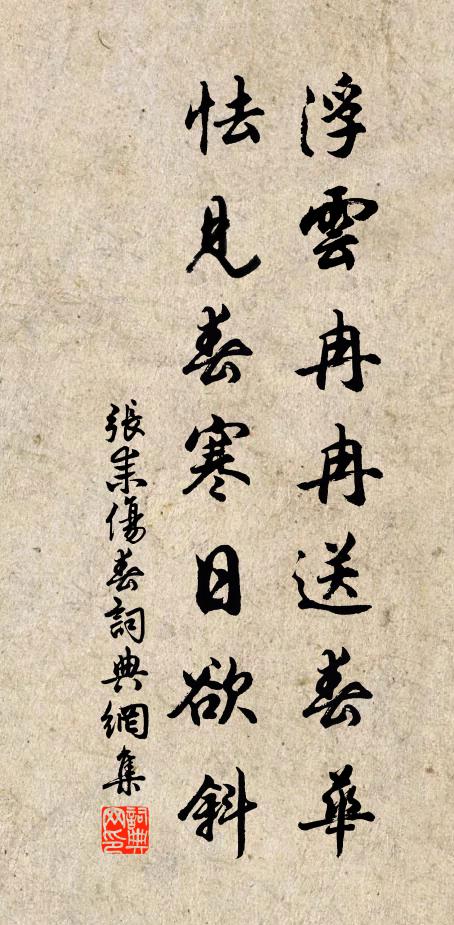 浮雲冉冉送春華
怯見春寒日欲斜
張耒傷春詞典網集
詞典網印